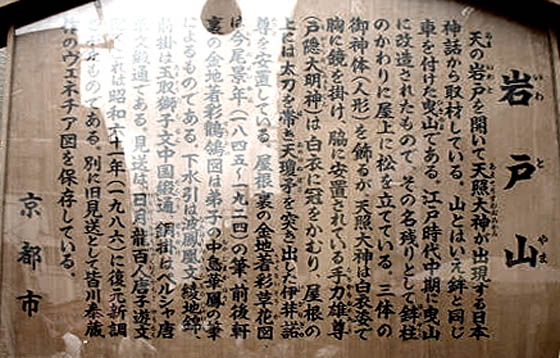 岩戸山
いわとやま
天の岩戸を開いて天照大神が出現する日本
神話から取材している。山とはいえ鉾と同じ
車を付けた曳山である。江戸時代中期に曳山
に改造されたもので、その名残りとして鉾柱
のかわりに屋上に松を立てている。三体の
御神体(人形)を飾るが天照大神は白衣姿で
胸に鏡を掛け、脇に安置されている手力雄尊
(戸隠大明神)は白衣に冠をかむり、屋根の
上には太刀を帯き天瓊矛を突き出した伊弉諾
尊を安置している。屋根裏の金地著彩草花図
は今尾景年(一八四五〜一九二四)の筆、前後軒
裏の金地著彩鶺鴒図は弟子の中島華鳳の筆
によるものである。下水引は波鳳凰文綾地錦、
前掛は玉取獅子文中国緞通、胴掛はペルシャ唐
文緞通である。見送は日月龍百人唐子遊文
昭和六十一年(一九八六)に復元新調
ものである。別に旧見送として皆川泰蔵
作のヴェネチア図を保存している。
京都市